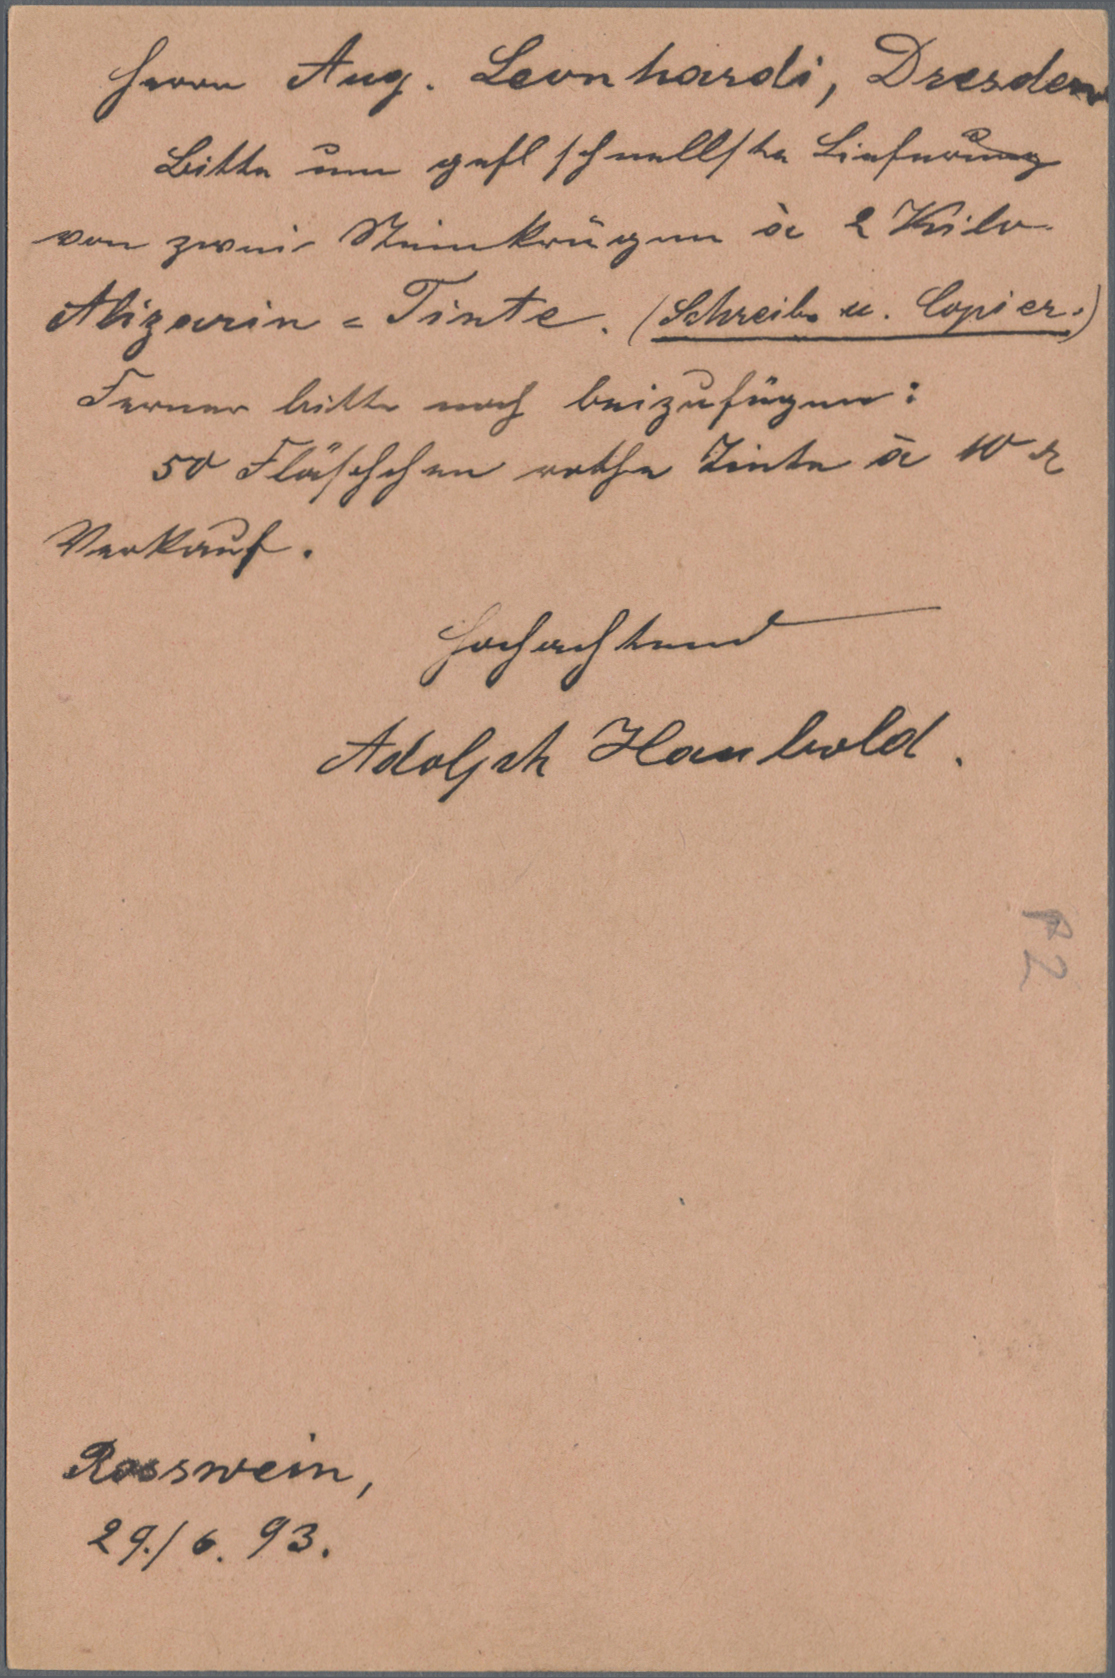 Herrn Aug. Leonhardi, Dresden
Bitte um gefl schnellste Lieferung
von zwei Steinkrügen à 2 Kilo
Alizarin = Tinte. (Schreib u. Copier.)
Ferner bitte noch beizufügen:
50 Fläschchen rothe Tinte à 10 ₰
Verkauf.
Hochachtend
Adolph Haubold.
Rosswein,
29./6. 93.